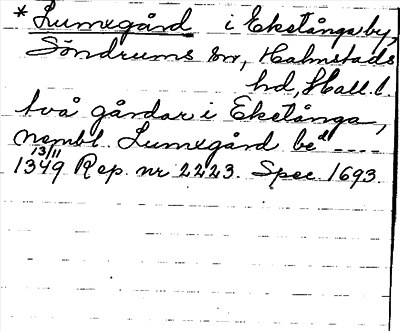 *Lumegård i Eketånga by,
Söndrums sn, Halmstads
hd, Hall. l.
två gårdar i Eketånga,
nembl. Lumegård be^d ----
13/11
1349 Rep. nr 2223. Spec. 1693.